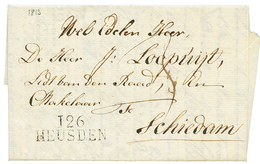 1815
Wel Edelen Heer,
De Heer J: Loopuijt,
Lidt van den Raad, En
Makelaar
te
Schiedam
126
HEUSDEN